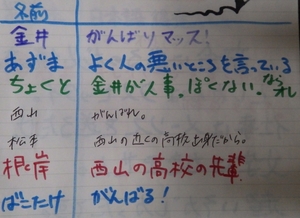 名前
金井 がんばりマッス!
あずま よく人の悪いところを言っている
ちょくと 金井が人事。ぽくない。なられ
西山 がんばれ。
松本 西山の近くの高校出身だから。
根岸 西山の高校の先輩
ばこたけ がんばる!